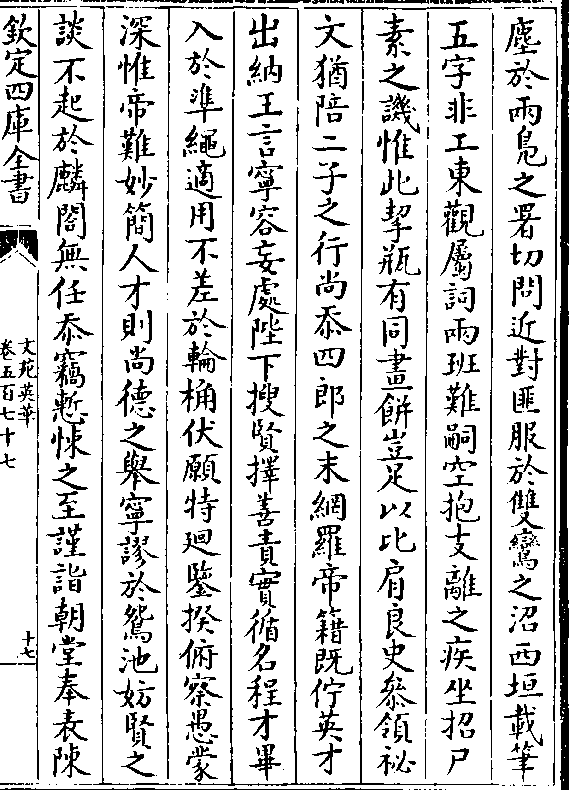 塵於兩鳬之署切問近對匪服於雙鸞之沼西垣載筆
五字非工東觀屬詞兩班難嗣空抱支離之疾坐招尸
素之譏惟此挈瓶有同畫餅豈足以比肩良史叅領祕
文猶陪二子之行尚忝四郎之末網羅帝籍既佇英才
出納王言寧容妄處陛下搜賢擇善責實循名程才畢
入於準繩適用不差於輪桷伏願特廻鑒揆俯察愚蒙
深惟帝難妙簡人才則尚德之舉寧謬於鴛池妨賢之
談不起於麟閣無任忝竊慙悚之至謹詣朝堂奉表陳
欽定四庫全書
文苑英華
卷五百七十七
十七